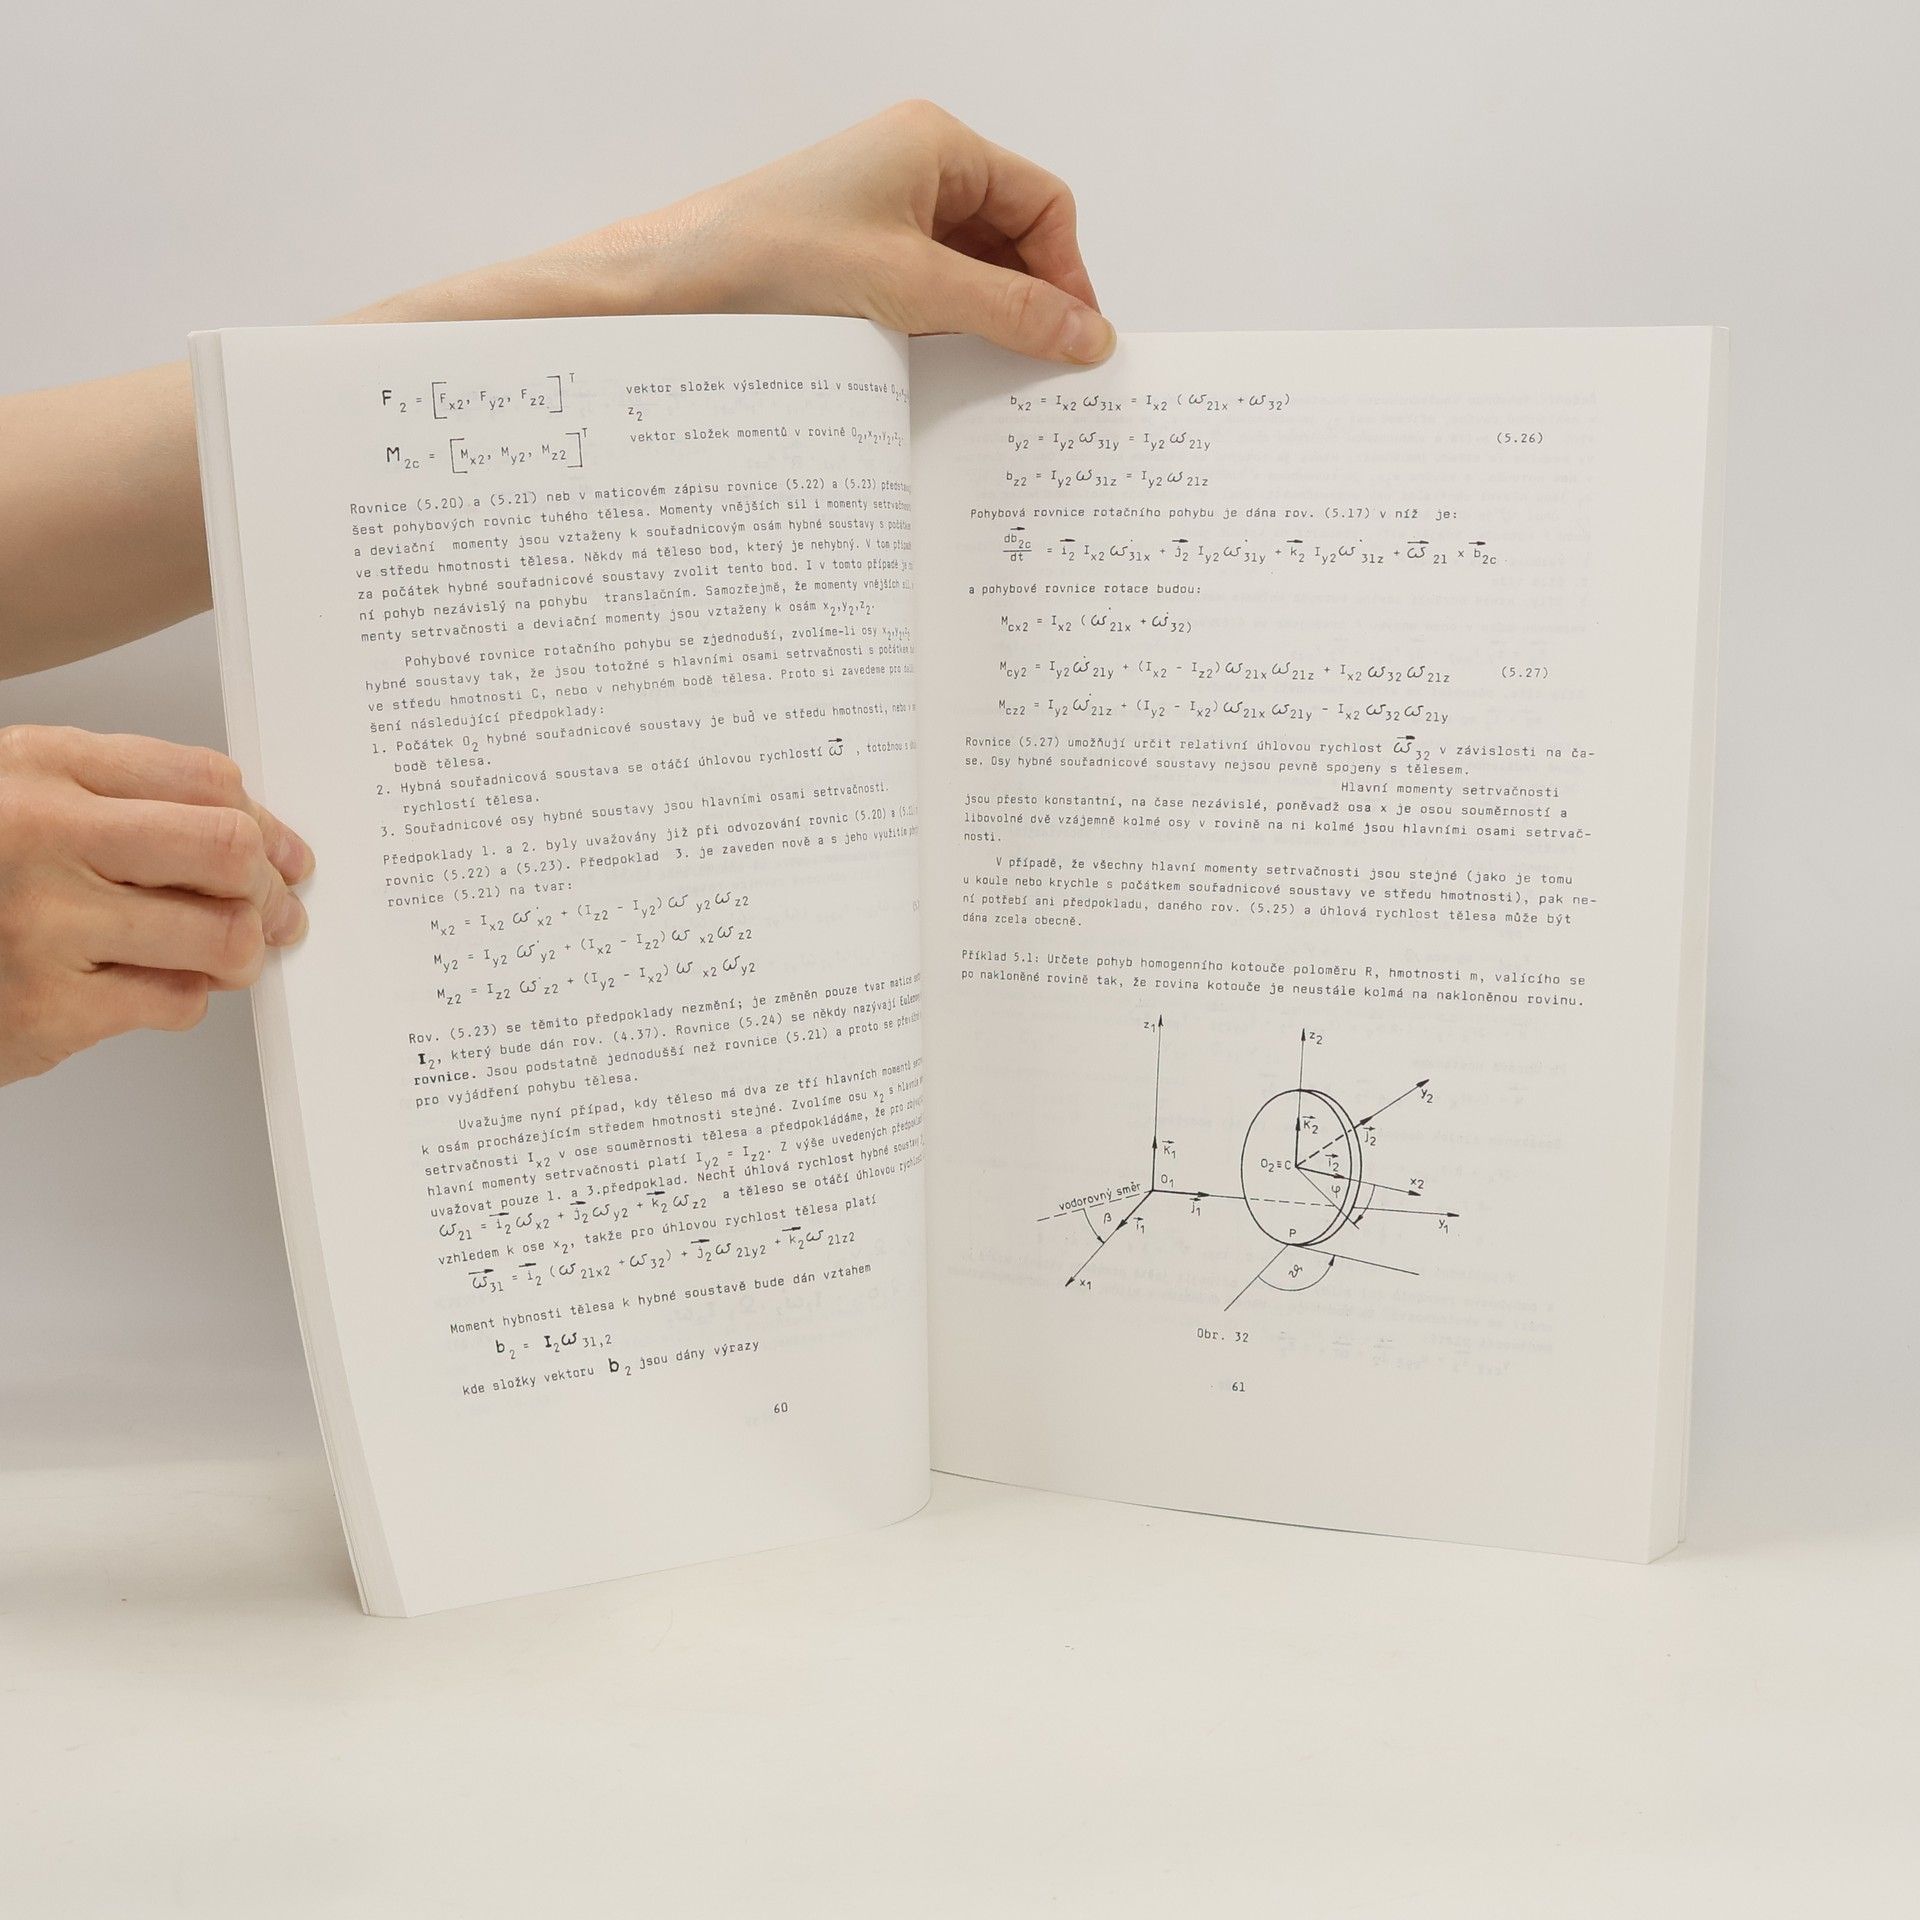 F 2 = [Fx2, Fy2, Fz2]T vektor složek výslednice sil v soustavě
z2
M 2c = [Mx2, My2, Mz2]T vektor složek momentů v rovině O2,x2,y2,z2.
Rovnice (5.20) a (5.21) neb v maticovém zápisu rovnice (5.22) a (5.23)
šest pohybových rovnic tuhého tělesa. Momenty vnějších sil i momenty
a deviační momenty jsou vztaženy k souřadnicovým osám hybné soustavy s
ve středu hmotnosti tělesa. Někdy má těleso bod, který je nehybný. V tom
za počátek hybné souřadnicové soustavy zvolit tento bod. I v tomto případě je
ní pohyb nezávislý na pohybu translačním. Samozřejmě, že momenty vnějších
menty setrvačnosti a deviační momenty jsou vztaženy k osám x2,y2,z2.
Pohybové rovnice rotačního pohybu se zjednoduší, zvolíme-li osy x2,y2,z2
hybné soustavy tak, že jsou totožné s hlavními osami setrvačnosti s počátkem
ve středu hmotnosti C, nebo v nehybném bodě tělesa. Proto si zavedeme pro
šení následující předpoklady:
1. Počátek O2 hybné souřadnicové soustavy je buď ve středu hmotnosti, nebo v
bodě tělesa.
2. Hybná souřadnicová soustava se otáčí úhlovou rychlostí ω⃗ , totožnou s
rychlostí tělesa.
3. Souřadnicové osy hybné soustavy jsou hlavními osami setrvačnosti.
Předpoklady 1. a 2. byly uvažovány již při odvozování rovnic (5.20) a
rovnic (5.22) a (5.23). Předpoklad 3. je zaveden nově a s jeho využitím
rovnice (5.21) na tvar:
Mx2 = Ix2 ω̇x2 + (Iz2 - Iy2) ωy2 ωz2
My2 = Iy2 ω̇y2 + (Ix2 - Iz2) ωx2 ωz2
Mz2 = Iz2 ω̇z2 + (Iy2 - Ix2) ωx2 ωy2
Rov. (5.23) se těmito předpoklady nezmění; je změněn pouze tvar matice
I2, který bude dán rov. (4.37). Rovnice (5.24) se někdy nazývají
rovnice. Jsou podstatně jednodušší než rovnice (5.21) a proto se
pro vyjádření pohybu tělesa.
Uvažujme nyní případ, kdy těleso má dva ze tří hlavních momentů
k osám procházejícím středem hmotnosti stejné. Zvolíme osu x2 s
setrvačnosti Ix2 v ose souměrnosti tělesa a předpokládáme, že pro
hlavní momenty setrvačnosti platí Iy2 = Iz2. Z výše uvedených
uvažovat pouze 1. a 3.předpoklad. Nechť úhlová rychlost hybné soustavy
ω21 = i⃗2 ωx2 + j⃗2 ωy2 + k⃗2 ωz2 a těleso se otáčí úhlovou
vzhledem k ose x2, takže pro úhlovou rychlost tělesa platí
ω⃗31 = i⃗2 (ω21x2 + ω32) + j⃗2 ω21y2 + k⃗2 ω21z2
Moment hybnosti tělesa k hybné soustavě bude dán vztahem
b2 = I2 ω31,2
kde složky vektoru b2 jsou dány výrazy
60
bx2 = Ix2 ω31x = Ix2 ( ω21x + ω32)
by2 = Iy2 ω31y = Iy2 ω21y (5.26)
bz2 = Iy2 ω31z = Iy2 ω21z
Pohybová rovnice rotačního pohybu je dána rov. (5.17) v níž je:
db⃗2c/dt = i⃗2 Ix2 ω̇31x + j⃗2 Iy2 ω̇31y + k⃗2 Iy2 ω̇31z + ω⃗21 x b⃗2c
a pohybové rovnice rotace budou:
Mcx2 = Ix2 ( ω̇21x + ω̇32)
Mcy2 = Iy2 ω̇21y + (Ix2 - Iz2) ω21x ω21z + Ix2 ω32 ω21z (5.27)
Mcz2 = Iy2 ω̇21z + (Iy2 - Ix2) ω21x ω21y - Ix2 ω32 ω21y
Rovnice (5.27) umožňují určit relativní úhlovou rychlost ω⃗32 v závislosti na ča-
se. Osy hybné souřadnicové soustavy nejsou pevně spojeny s tělesem.
Hlavní momenty setrvačnosti
jsou přesto konstantní, na čase nezávislé, poněvadž osa x je osou souměrností a
libovolné dvě vzájemně kolmé osy v rovině na ni kolmé jsou hlavními osami setrvač-
nosti.
V případě, že všechny hlavní momenty setrvačnosti jsou stejné (jako je tomu
u koule nebo krychle s počátkem souřadnicové soustavy ve středu hmotnosti), pak ne-
ní potřebí ani předpokladu, daného rov. (5.25) a úhlová rychlost tělesa může být
dána zcela obecně.
Příklad 5.1: Určete pohyb homogenního kotouče poloměru R, hmotnosti m, valícího se
po nakloněné rovině tak, že rovina kotouče je neustále kolmá na nakloněnou rovinu.
z1
z2
y2
k⃗2
j⃗2
k⃗1
O2≡C
i⃗2
x2
O1
φ
vodorovný směr
j⃗1
y1
β
i⃗1
P
x1
ϑ
Obr. 32
61